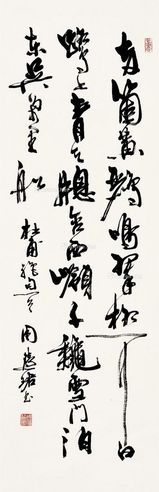 两箇黃鸝鳴翠柳一行白
鷺上青天牕含西嶺千龝雪門泊
東吳萬里船 杜甫絕句 周慧珺书